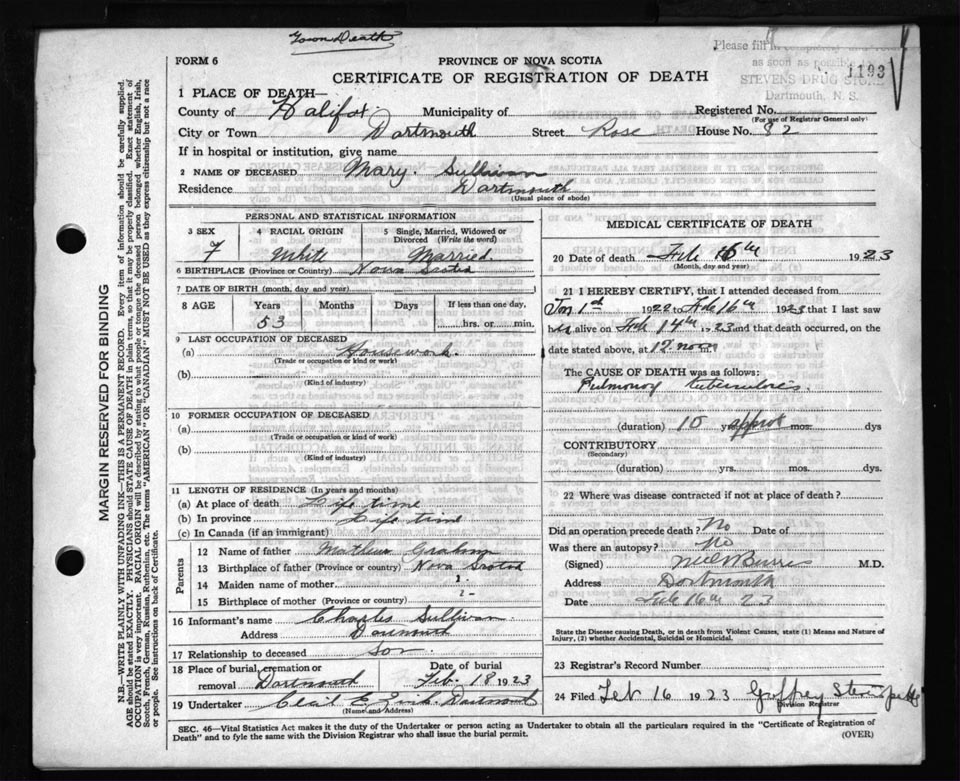 Town Death
Please fill in
as soon as possible
STEVENS DRUG STORE
Dartmouth, N. S.
1193
FORM 6
PROVINCE OF NOVA SCOTIA
CERTIFICATE OF REGISTRATION OF DEATH
1 PLACE OF DEATH—
County of Halifax Municipality of Registered No.
(For use of Registrar General only)
City or Town Dartmouth Street Rose House No. 82
If in hospital or institution, give name
2 NAME OF DECEASED Mary. Sullivan
Residence Dartmouth
(Usual place of abode)
PERSONAL AND STATISTICAL INFORMATION
3 SEX 4 RACIAL ORIGIN 5 Single, Married, Widowed or Divorced (Write the word)
F White Married.
6 BIRTHPLACE (Province or Country) Nova Scotia
7 DATE OF BIRTH (month, day and year)
8 AGE Years Months Days If less than one day,
53 hrs. or min.
9 LAST OCCUPATION OF DECEASED
(a) Housework.
(Trade or occupation or kind of work)
(b)
(Kind of industry)
10 FORMER OCCUPATION OF DECEASED
(a)
(Trade or occupation or kind of work)
(b)
(Kind of industry)
11 LENGTH OF RESIDENCE (In years and months)
(a) At place of death Life time
(b) In province Life time
(c) In Canada (if an immigrant)
Parents
12 Name of father Mathew Graham
13 Birthplace of father (Province or Country) Nova Scotia
14 Maiden name of mother
15 Birthplace of mother (Province or Country)
16 Informant's name Charles Sullivan
Address Dartmouth
17 Relationship to deceased Son
18 Place of burial, cremation or removal Dartmouth Date of burial Feb. 18 1923
19 Undertaker Dartmouth
(Name and Address)
MEDICAL CERTIFICATE OF DEATH
20 Date of death Feb 16th 1923
(Month, day and year)
21 I HEREBY CERTIFY, that I attended deceased from
Jan 1st 1922 to Feb 16th 1923 that I last saw
her alive on Feb 14th 1923 and that death occurred, on the
date stated above, at 12 noon m.
The CAUSE OF DEATH was as follows:
Pulmonary tuberculosis.
(duration) 10 yrs. approx mos. dys
CONTRIBUTORY
(Secondary)
(duration) yrs. mos. dys
22 Where was disease contracted if not at place of death?
Did an operation precede death? No Date of
Was there an autopsy? No
(Signed) M.D.
Address Dartmouth
Date Feb 16th 23
State the Disease causing Death, or in death from Violent Causes, state (1) Means and Nature of
Injury, (2) whether Accidental, Suicidal or Homicidal.
23 Registrar's Record Number
24 Filed Feb 16 1923
Division Registrar
SEC. 46—Vital Statistics Act makes it the duty of the Undertaker or person acting as Undertaker to obtain all the particulars required in the "Certificate of Registration of
Death" and to fyle the same with the Division Registrar who shall issue the burial permit. (OVER)
MARGIN RESERVED FOR BINDING
N.B.—WRITE PLAINLY WITH UNFADING INK—THIS IS A PERMANENT RECORD. Every item of information should be carefully supplied.
AGE should be stated EXACTLY. PHYSICIANS should STATE CAUSE OF DEATH in plain terms, so that it may be properly classified. Exact statement of
OCCUPATION is very important. RACIAL ORIGIN will be described by stating to what people or tongue the deceased person belonged whether English, Irish,
Scotch, French, German, Russian, Ruthenian, etc. The terms "AMERICAN" OR "CANADIAN" MUST NOT BE USED as they express citizenship but not a race
or people. See instructions on back of Certificate.